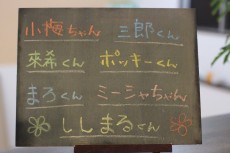 小梅ちゃん 三郎くん
來希くん ポッキーくん
まろくん ミーシャちゃん
ししまるくん